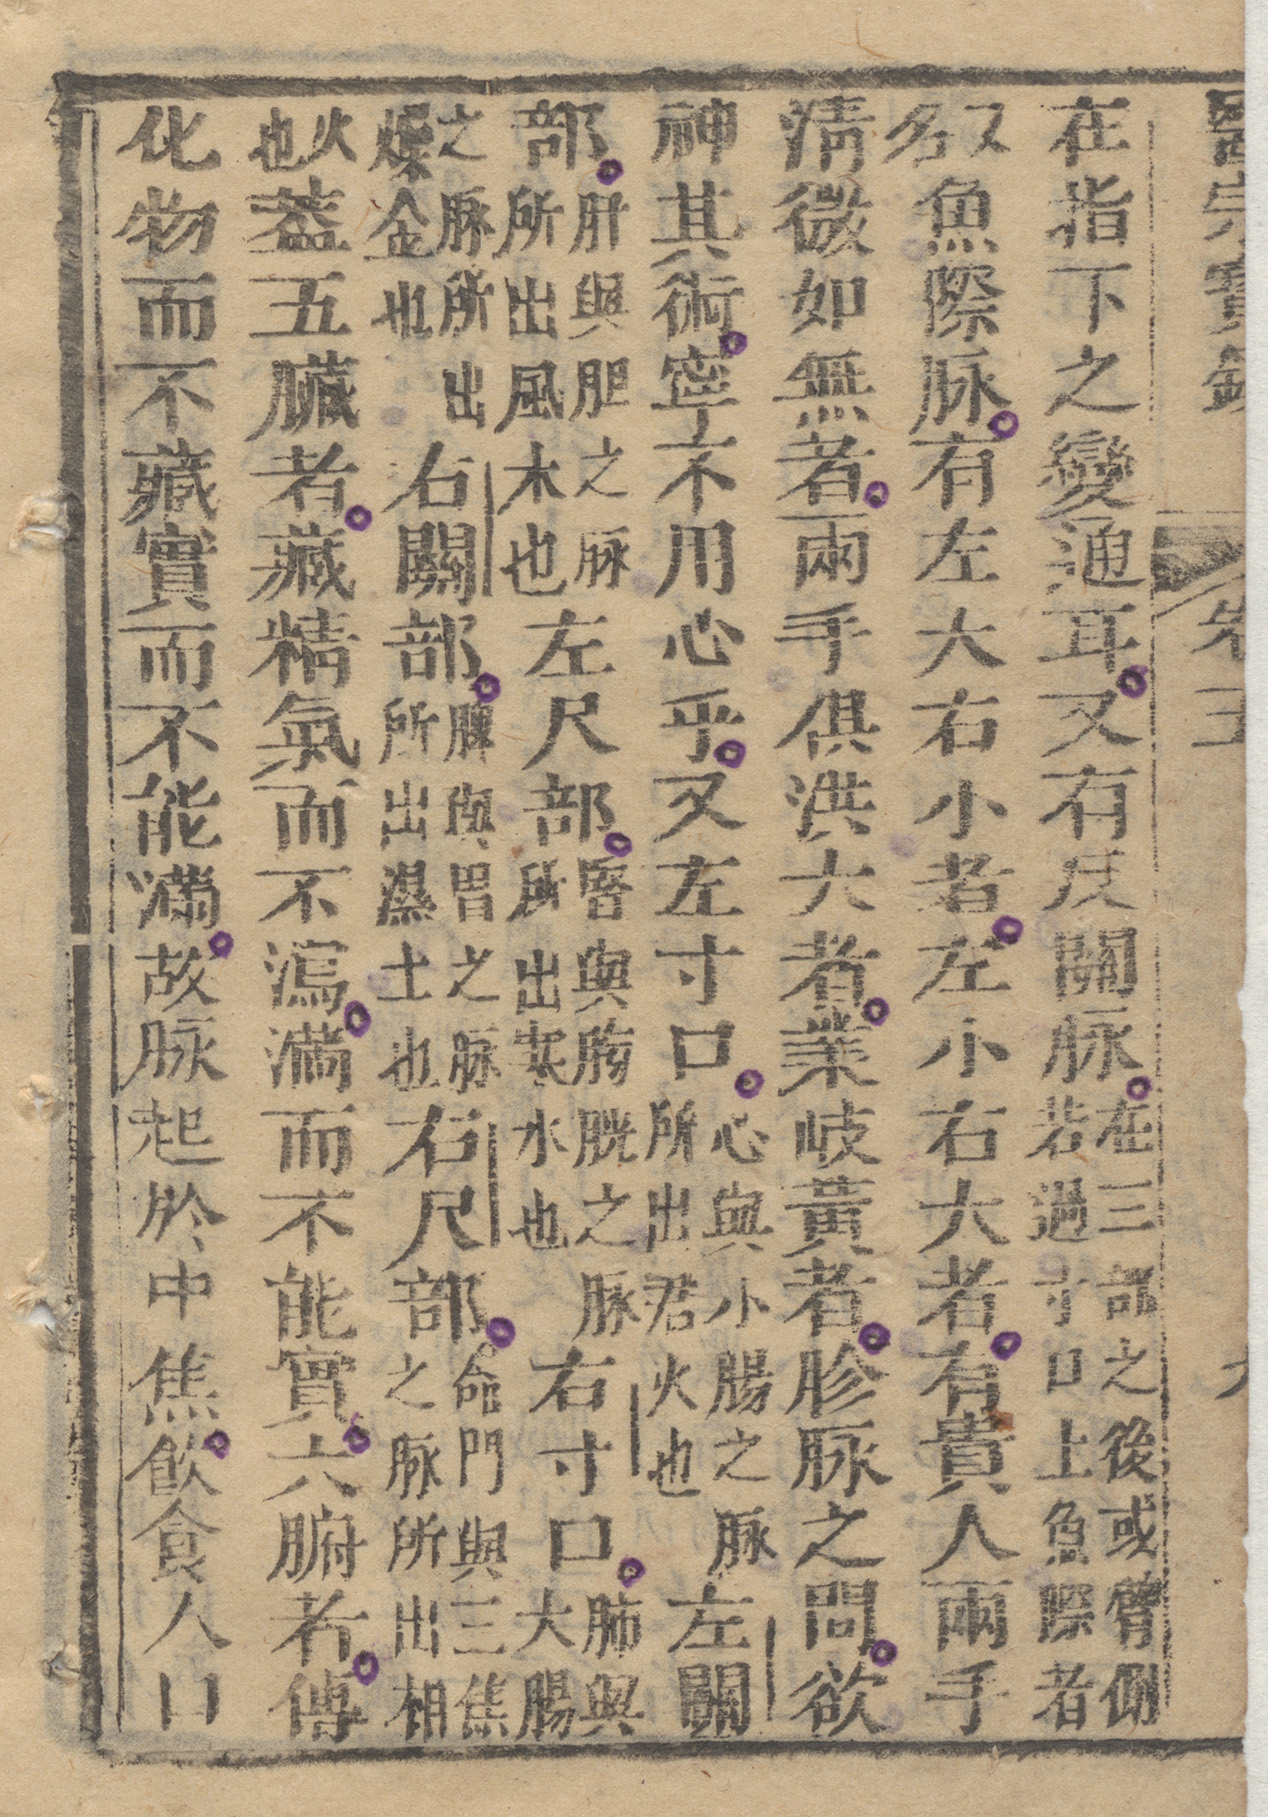 醫宗寶
卷三
在指下之變通耳又有反關脉在三部之後或臂側若過寸口上魚際者
又名魚際脉有左大右小者左小右大者有貴人兩手
清微如無者兩手俱洪大者業岐黃者胗脉之間欲
神其術寧不用心乎又左寸口心與小腸之脉所出君火也左關
部肝與胆之脉所出風木也左尺部腎與膀胱之脉所出寒水也右寸口肺與大腸
之脉所出燥金也右關部脾與胃之脉所出濕土也右尺部命門與三焦之脉所出相
火也蓋五臟者藏精氣而不瀉滿而不能實六腑者傳
化物而不藏實而不能滿故脉起於中焦飲食入口